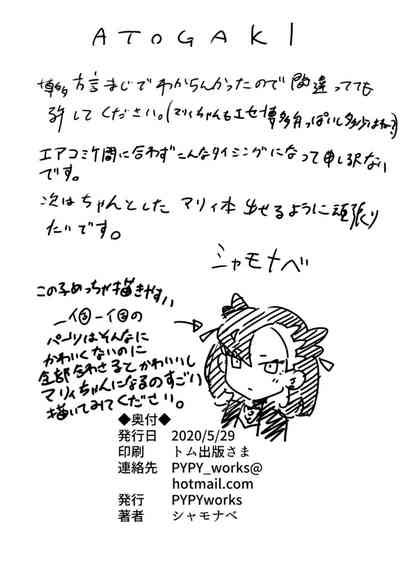 ATOGAKI
博多方言まじでわからんかったので間違ってても
許してください。(マリィちゃんもエセ博多弁っぽいし多分よね?)
エアコミケ間に合わずこんなタイミングになって申し訳ない
です。
次はちゃんとした マリィ本 出せるように頑張り
たいです。
シャモナベ
この子めっちゃ描きやすい
一個一個の
パーツはそんなに
かわいくないのに
全部合わさるとかわいいし
マリィちゃんになるのすごい
描いてみてください。
◆奥付◆
発行日 2020/5/29
印刷 トム出版さま
連絡先 PYPY_works@
hotmail.com
発行 PYPYworks
著者 シャモナベ